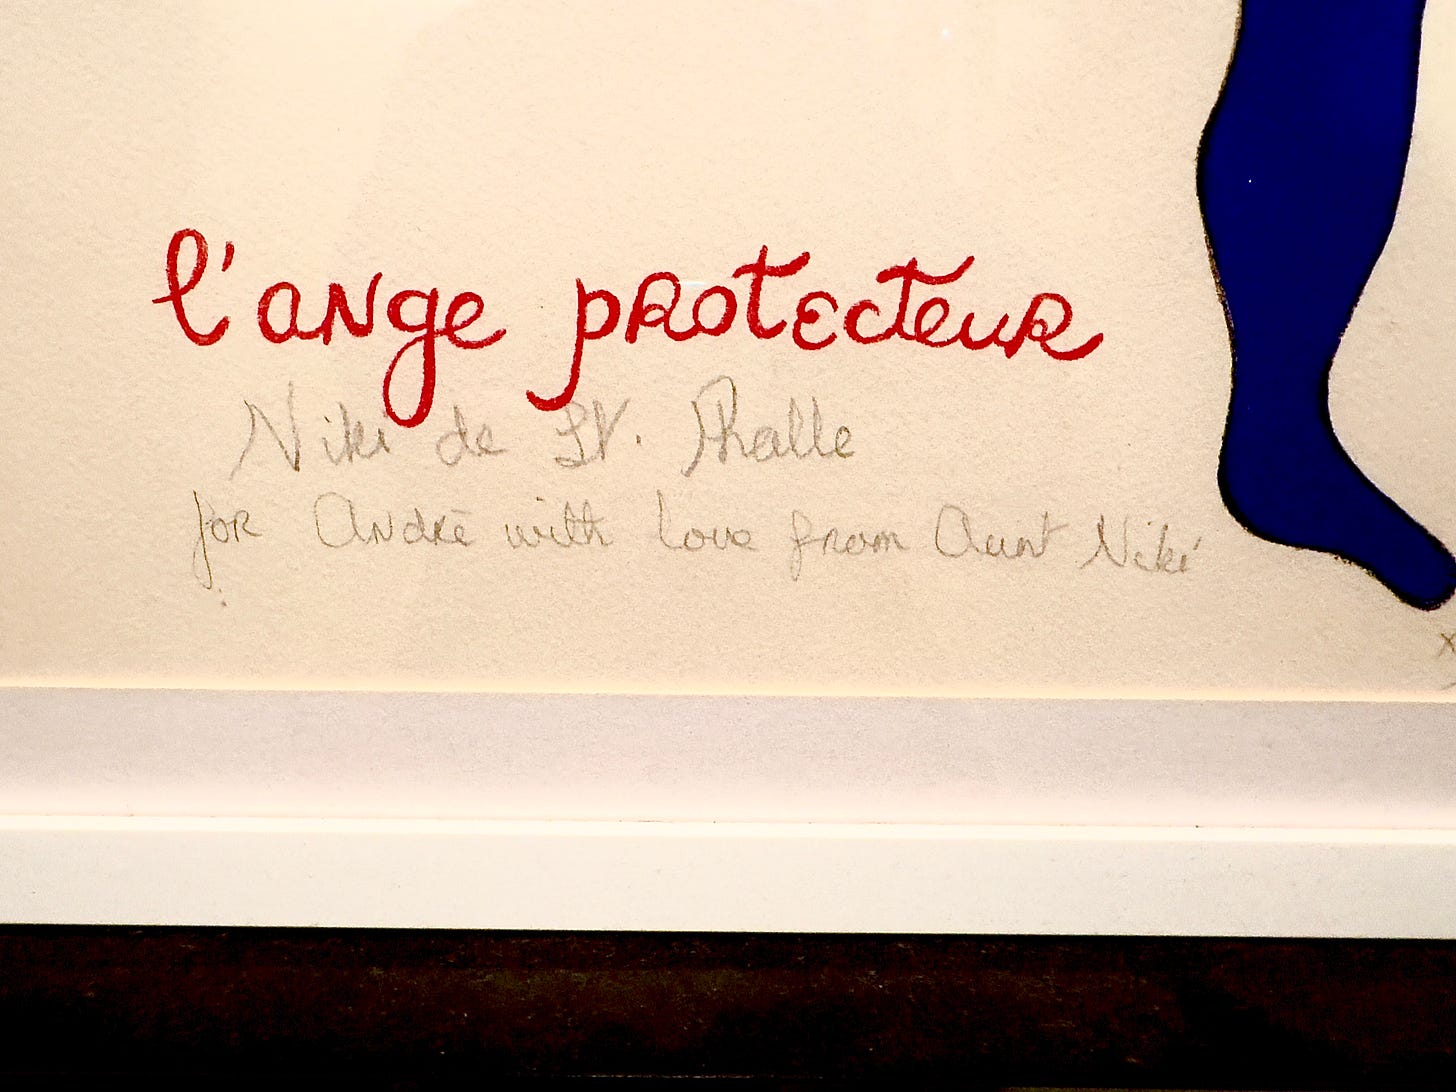 l'ange protecteur
Niki de St. Phalle
for André with love from Aunt Niki
x